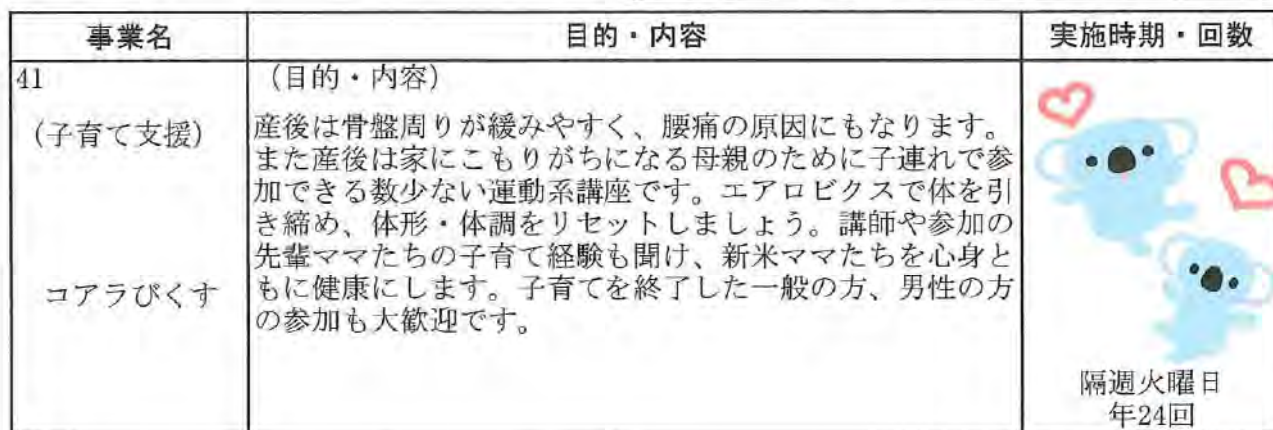 事業名
目的・内容
実施時期・回数
41
(子育て支援)
コアラびくす
(目的・内容)
産後は骨盤周りが緩みやすく、腰痛の原因にもなります。
また産後は家にこもりがちになる母親のために子連れで参
加できる数少ない運動系講座です。エアロビクスで体を引
き締め、体形・体調をリセットしましょう。講師や参加の
先輩ママたちの子育て経験も聞け、新米ママたちを心身と
もに健康にします。子育てを終了した一般の方、男性の方
の参加も大歓迎です。
隔週火曜日
年24回